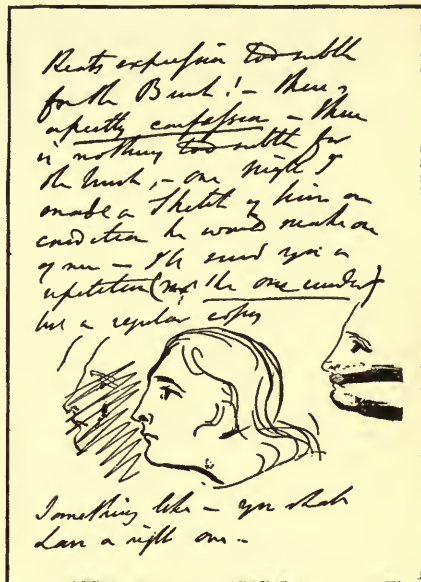 Keats expression too subtle
for the Brush! — there's
a pretty confession — there
is nothing too subtle for
the brush, — one night I
made a Sketch of him on
condition he would make one
of me — I'll send you a
repetition (not the one under)
but a regular copy
Something like — you shall
have a right one —